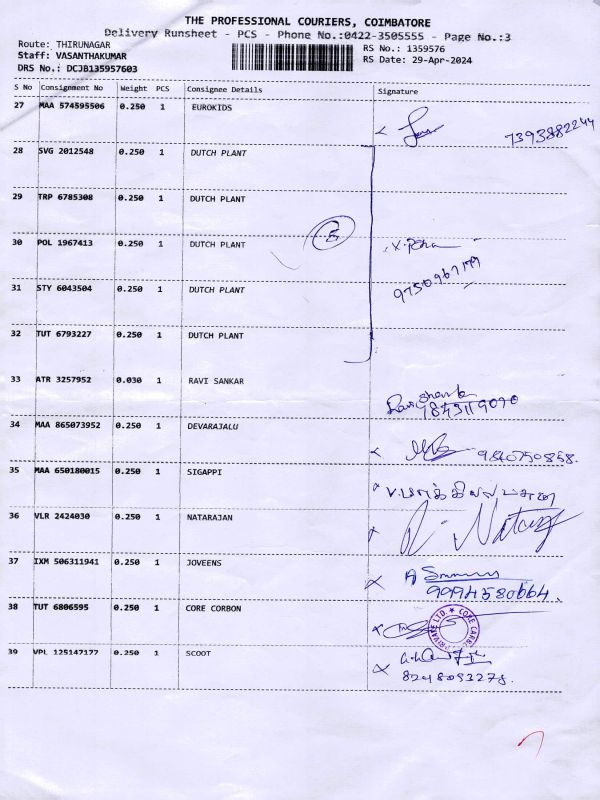 THE PROFESSIONAL COURIERS, COIMBATORE
Delivery Runsheet - PCS - Phone No.:0422-3505555 - Page No.:3
Route: THIRUNAGAR RS No.: 1359576
Staff: VASANTHAKUMAR RS Date: 29-Apr-2024
DRS No.: DCJB135957603
S No Consignment No Weight PCS Consignee Details Signature
27 MAA 574595506 0.250 1 EUROKIDS
7393882244
28 SVG 2012548 0.250 1 DUTCH PLANT
29 TRP 6785308 0.250 1 DUTCH PLANT
5
30 POL 1967413 0.250 1 DUTCH PLANT
31 STY 6043504 0.250 1 DUTCH PLANT
32 TUT 6793227 0.250 1 DUTCH PLANT
33 ATR 3257952 0.030 1 RAVI SANKAR
34 MAA 865073952 0.250 1 DEVARAJALU
35 MAA 650180015 0.250 1 SIGAPPI
36 VLR 2424030 0.250 1 NATARAJAN
37 IXM 506311941 0.250 1 JOVEENS
9994580664.
38 TUT 6806595 0.250 1 CORE CORBON
39 VPL 125147177 0.250 1 SCOOT
8248093278.